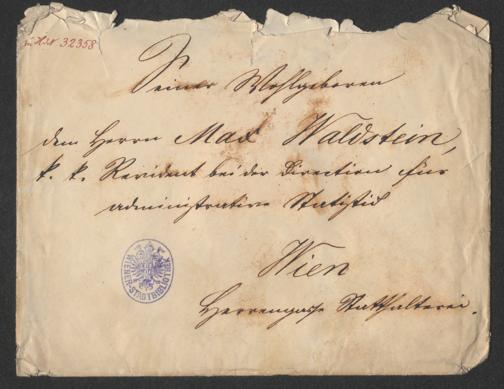 zu H.I.N 32358
Seiner Wohlgeboren
dem Herrn Max Waldstein,
k. k. Revident bei der Direction für
administrative Statistik
Wien
Herrengasse Statthalterei.
WIENER STADTBIBLIOTHEK